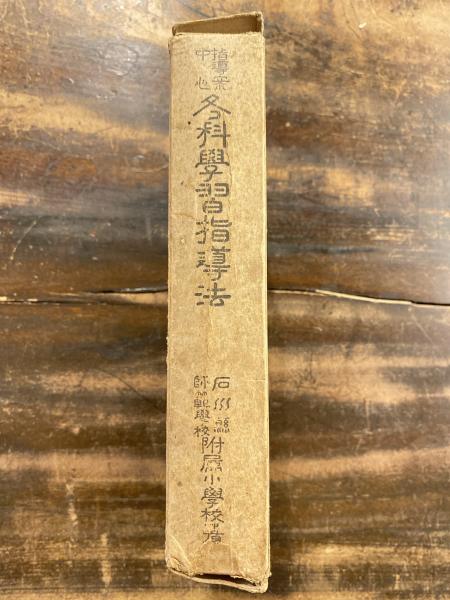 指導案
中心
各科學習指導法
石川縣
師範學校
附屬小學校著